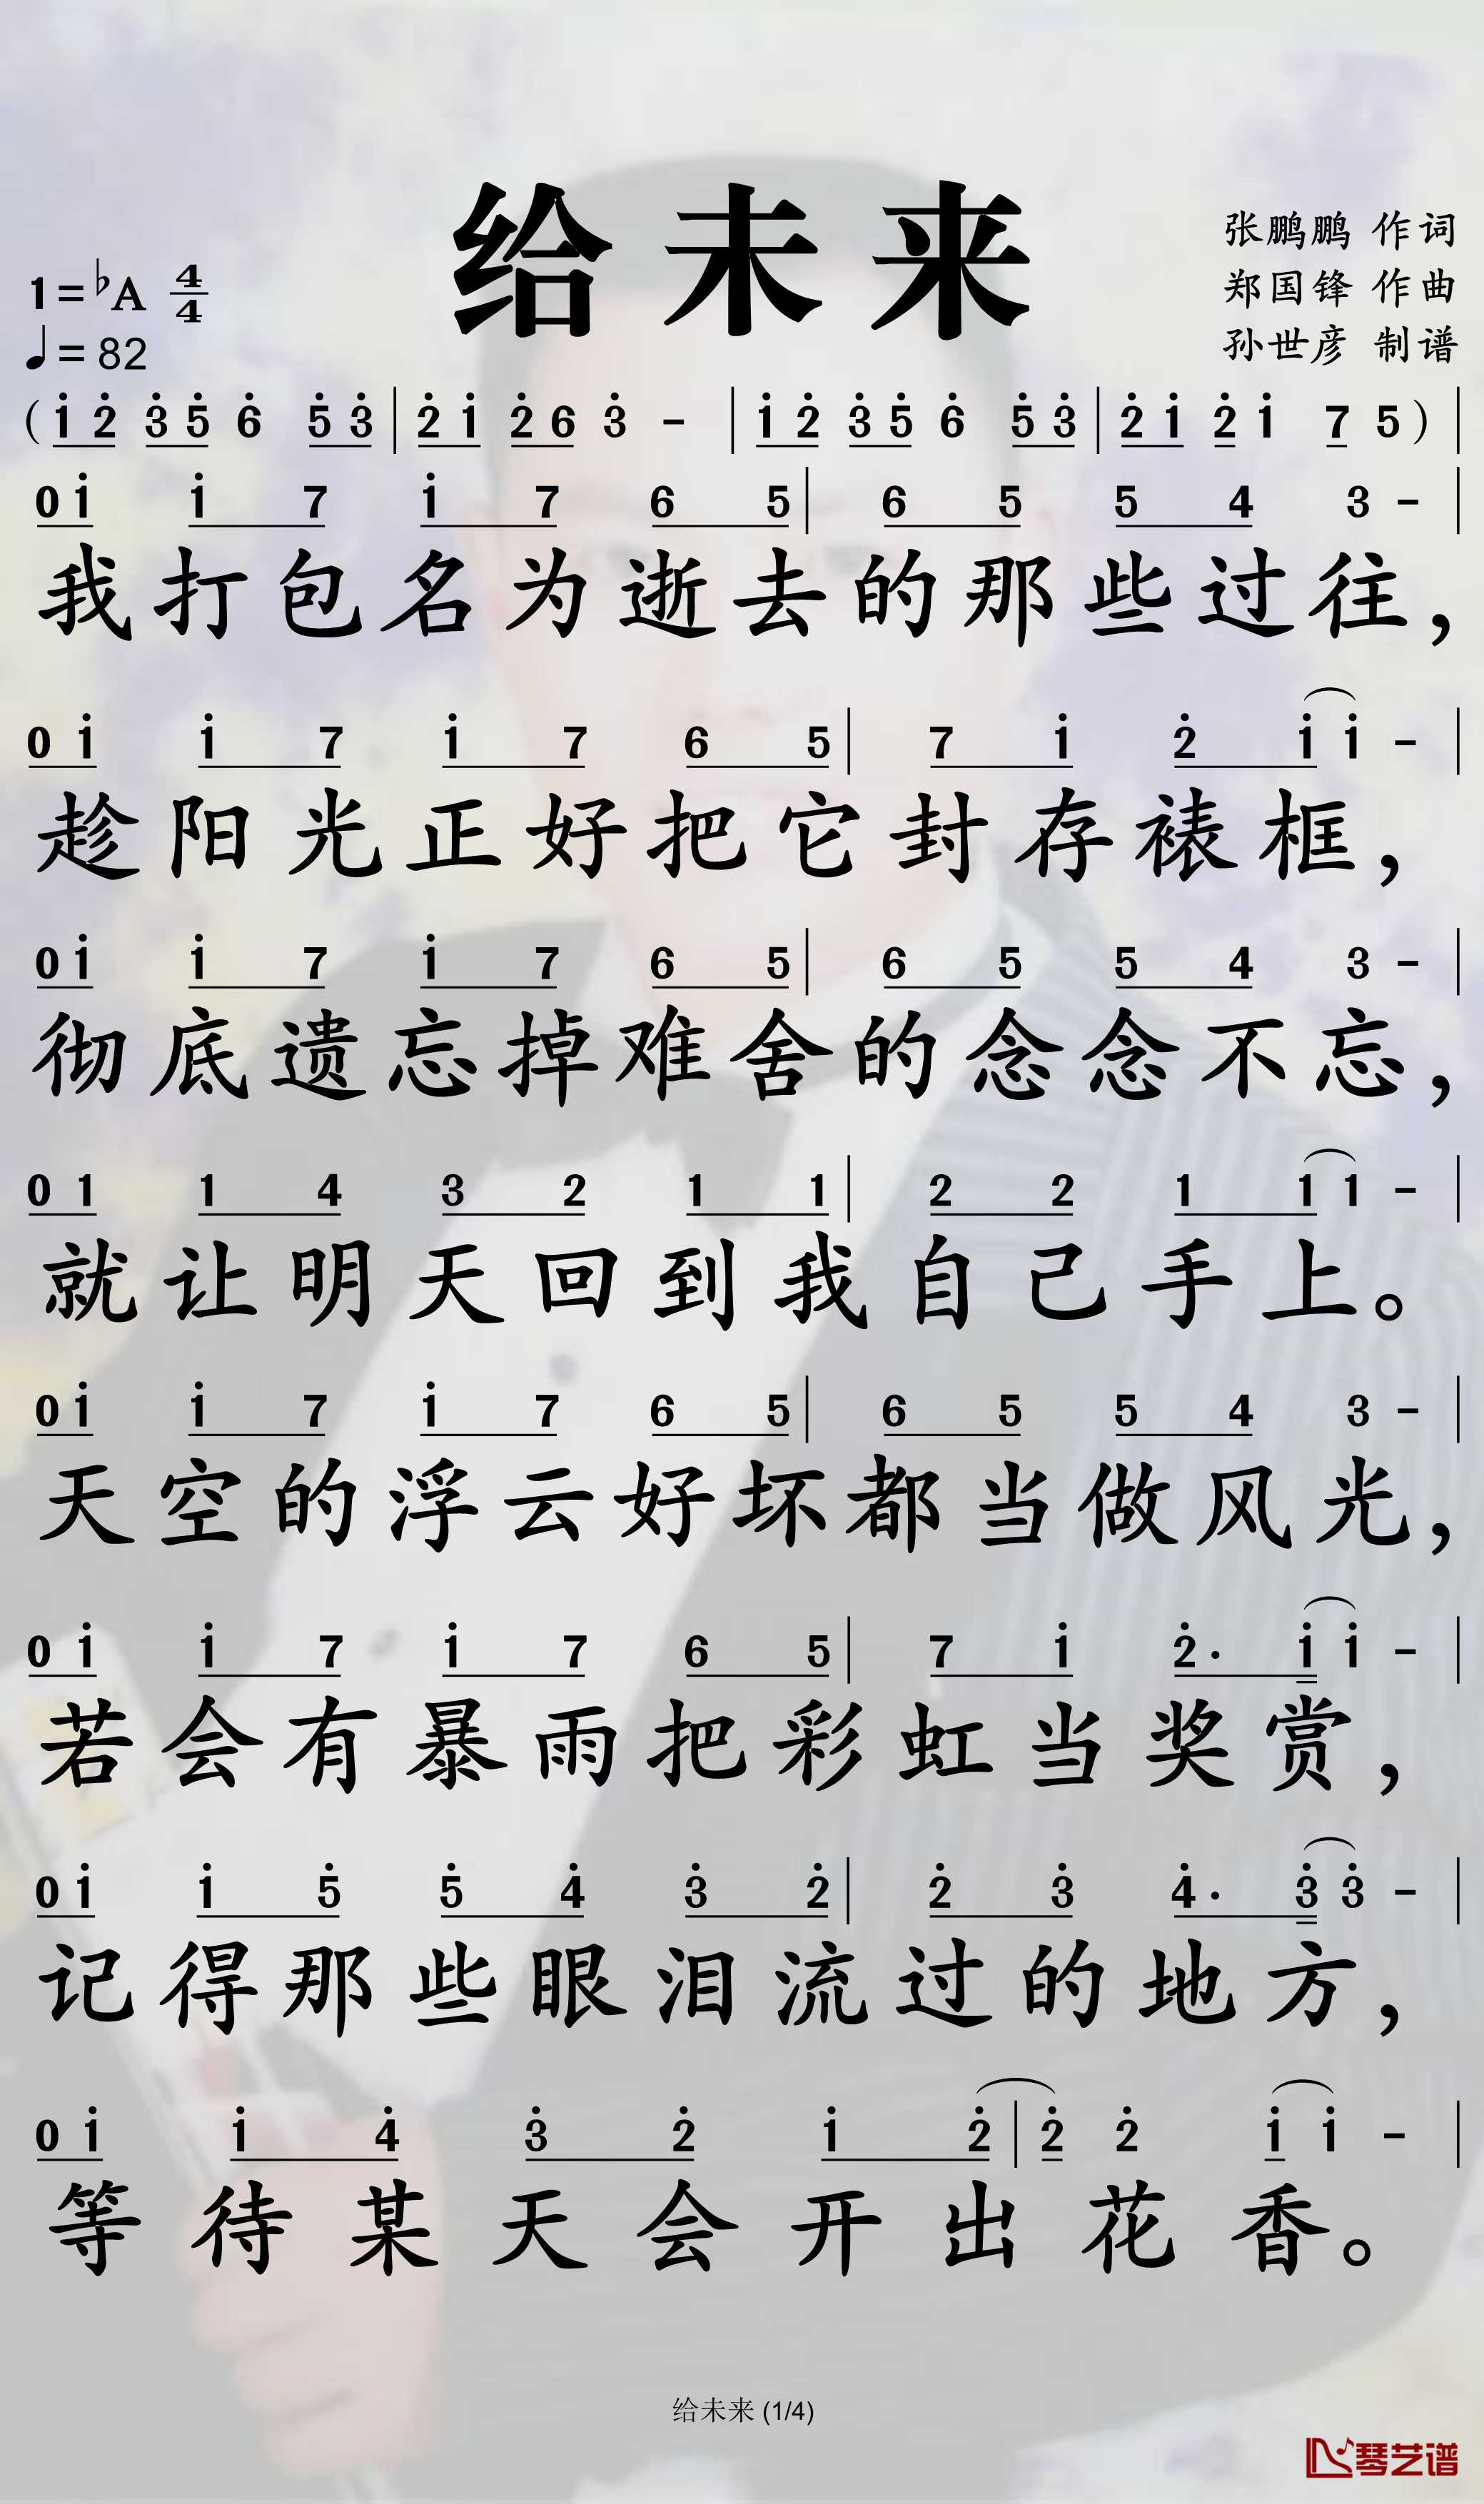 给未来
张鹏鹏 作词
1=♭A 4/4
郑国锋 作曲
♩=82
孙世彦 制谱
(i̇ 2̇ 3̇ 5̇ 6̇ 5̇ 3̇ | 2̇ i̇ 2̇ 6 3̇ - | i̇ 2̇ 3̇ 5̇ 6̇ 5̇ 3̇ | 2̇ i̇ 2̇ i̇ 7 5) |
0 i̇ i̇ 7 i̇ 7 6 5 | 6 5 5 4 3 - |
我打包名为逝去的那些过往，
0 i̇ i̇ 7 i̇ 7 6 5 | 7 i̇ 2̇ i̇ i̇ - |
趁阳光正好把它封存裱框，
0 i̇ i̇ 7 i̇ 7 6 5 | 6 5 5 4 3 - |
彻底遗忘掉难舍的念念不忘，
0 1 1 4 3 2 1 1 | 2 2 1 1 1 - |
就让明天回到我自己手上。
0 i̇ i̇ 7 i̇ 7 6 5 | 6 5 5 4 3 - |
天空的浮云好坏都当做风光，
0 i̇ i̇ 7 i̇ 7 6 5 | 7 i̇ 2̇· i̇ i̇ - |
若会有暴雨把彩虹当奖赏，
0 i̇ i̇ 5̇ 5̇ 4̇ 3̇ 2̇ | 2̇ 3̇ 4̇· 3̇ 3̇ - |
记得那些眼泪流过的地方，
0 i̇ i̇ 4̇ 3̇ 2̇ i̇ 2̇ | 2̇ 2̇ i̇ i̇ - |
等待某天会开出花香。
给未来 (1/4)
琴艺谱